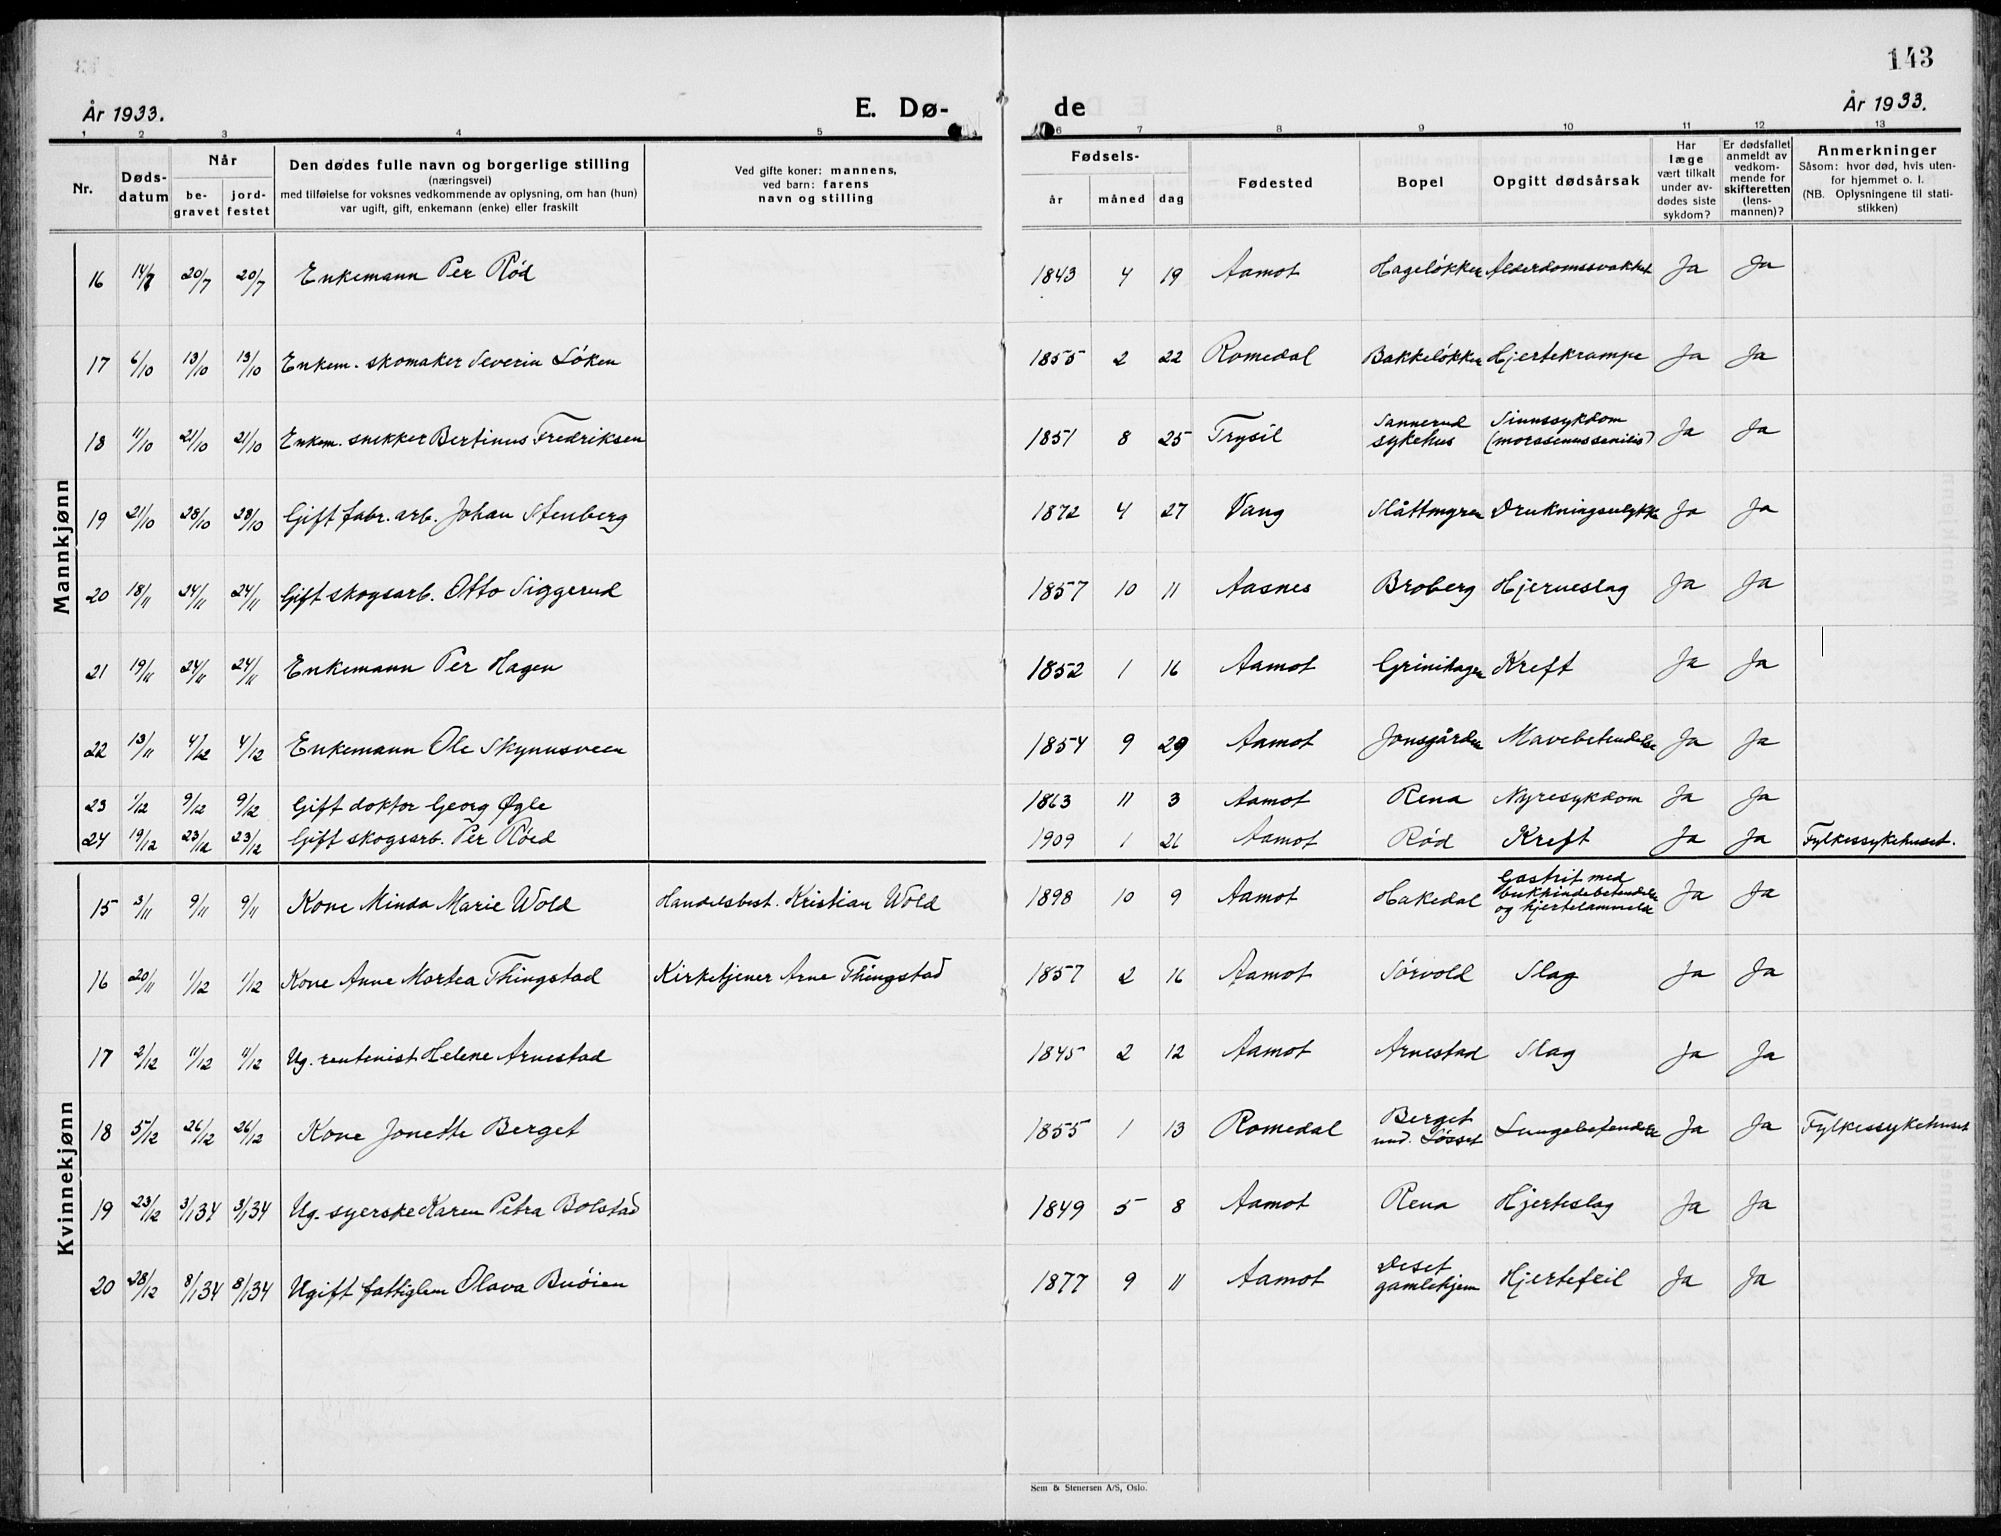 143
År 1933.
E. Dø-
de
År 1933.
1 2 3 4 5 6 7 8 9 10 11 12 13
Nr.
Døds-
datum
Når
be-
gravet
jord-
festet
Den dødes fulle navn og borgerlige stilling
(næringsvei)
med tilføielse for voksnes vedkommende av oplysning, om han (hun)
var ugift, gift, enkemann (enke) eller fraskilt
Ved gifte koner: mannens,
ved barn: farens
navn og stilling
Fødsels-
år måned dag
Fødested
Bopel
Opgitt dødsårsak
Har
læge
vært tilkalt
under av-
dødes siste
sykdom?
Er dødsfallet
anmeldt av
vedkom-
mende for
skifteretten
(lens-
mannen)?
Anmerkninger
Såsom: hvor død, hvis uten-
for hjemmet o. l.
(NB. Oplysningene til stati-
stikken)
Mannkjønn
16 14/7 20/7 20/7 Enkemann Per Rød 1843 4 19 Aamot Hageløkken Alderdomssvakhet Ja Ja
17 6/10 13/10 13/10 Enkem. skomaker Severin Løken 1855 2 22 Romedal Bakkeløkken Hjertekrampe Ja Ja
18 11/10 21/10 21/10 Enkem. snekker Bertinus Fredriksen 1851 8 25 Trysil Sannerud
sykehus Sinnssykdom
Ja Ja
19 21/10 28/10 28/10 Gift fabr. arb. Johan Stenberg 1872 4 27 Vang Slåttmyren Drukningsulykke Ja Ja
20 18/11 24/11 24/11 Gift skogsarb. Otto Siggerud 1857 10 11 Aasnes Broberg Hjerneslag Ja Ja
21 19/11 24/11 24/11 Enkemann Per Hagen 1852 1 16 Aamot Grinihagen Kreft Ja Ja
22 13/11 4/12 4/12 Enkemann Ole Skynnsveen 1854 9 29 Aamot Jonsgården Mavebetendelse Ja Ja
23 1/12 9/12 9/12 Gift doktor Georg Øgle 1863 11 3 Aamot Rena Nyresykdom Ja Ja
24 19/12 23/12 23/12 Gift skogsarb. Per Röed 1909 1 26 Aamot Rød Kreft Ja Ja Fylkessykehuset.
Kvinnekjønn
15 3/11 9/11 9/11 Kone Minda Marie Wold Handelsbest. Kristian Wold 1898 10 9 Aamot Hakedal Gastrit med
bukhindebetendelse
og hjertelammelse Ja Ja
16 20/11 1/12 1/12 Kone Anne Martea Thingstad Kirketjener Arne Thingstad 1857 2 16 Aamot Sörvold Slag Ja Ja
17 2/12 11/12 11/12 Ug. rentenist Helene Arnestad 1845 2 12 Aamot Arnestad Slag Ja Ja
18 5/12 26/12 26/12 Kone Jonette Berget 1855 1 13 Romedal Berget
und. Løsset Lungebetendelse Ja Ja Fylkessykehuset
19 23/12 3/1 34 3/1 34 Ug. syerske Karen Petra Bolstad 1849 5 8 Aamot Rena Hjerteslag Ja Ja
20 28/12 8/1 34 8/1 34 Ugift fattiglem Olava Buöien 1877 9 11 Aamot Deset
gamlehjem Hjertefeil Ja Ja
Sem & Stenersen A/S, Oslo.